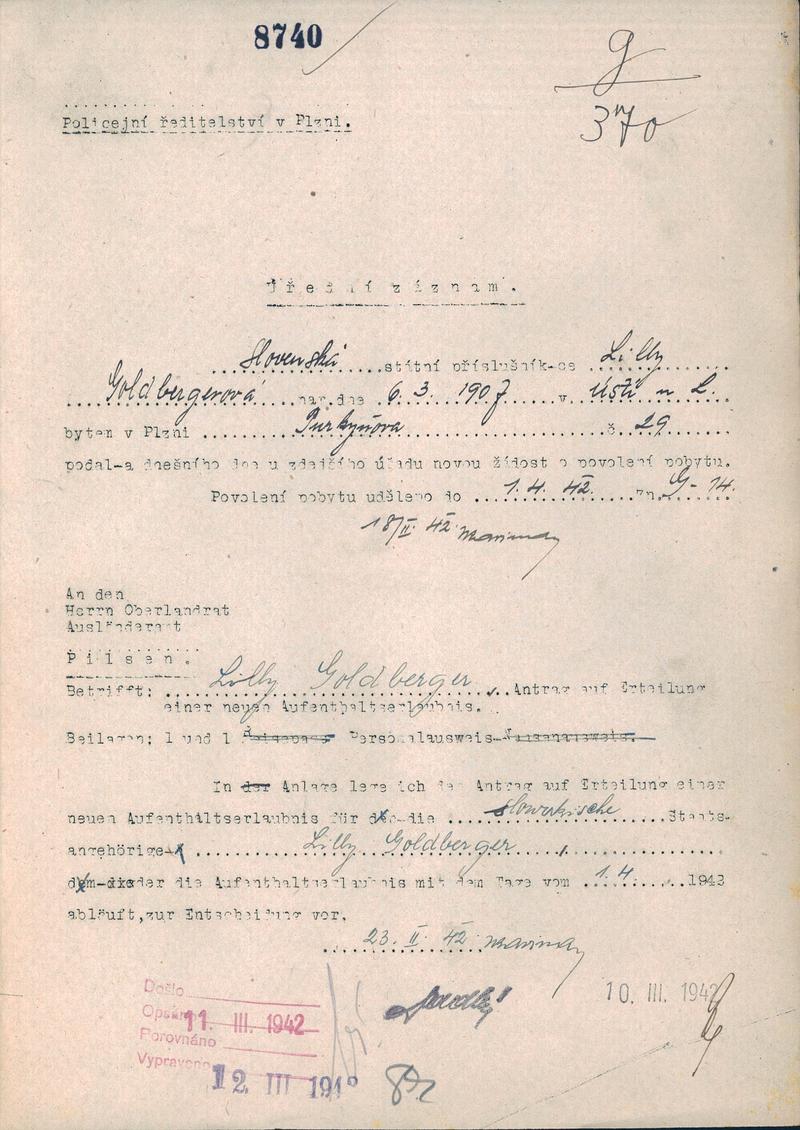 8740
g
370
Policejní ředitelství v Plzni.
Úřední záznam.
Slovenská státní příslušník-ce Lilly
Goldbergerová nar. dne 6. 3. 1907 v Ústí n L.
bytem v Plzni Purkyňova č 29
podal-a dnešního dne u zdejšího úřadu novou žádost o povolení pobytu.
Povolení pobytu uděleno do 1. 4. 42. zn. G-14.
18/II 42
An den
Herrn Oberlandrat
Ausländeramt
Pilsen.
Betrifft: Lilly Goldberger, Antrag auf Erteilung
einer neuen Aufenthaltserlaubnis.
Beilagen: 1 und 1 Reisepass Personalausweis
In der Anlage lege ich den Antrag auf Erteilung einer
neuen Aufenthaltserlaubnis für den-die slowakische Staats-
angehörige Lilly Goldberger,
dem-die der die Aufenthaltserlaubnis mit dem Tage vom 1. 4. 1942
abläuft, zur Entscheidung vor.
23. II. 42
10. III. 1942
Došlo
Opsáno 11. III. 1942
Porovnáno
Vypraveno
12 III 194